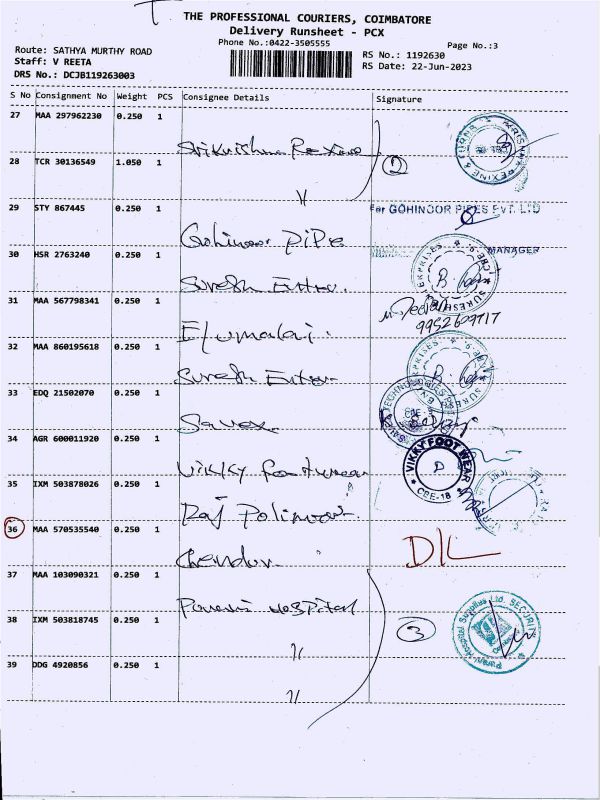 THE PROFESSIONAL COURIERS, COIMBATORE
Delivery Runsheet - PCX
Phone No.:0422-3505555
Page No.:3
Route: SATHYA MURTHY ROAD
Staff: V REETA
DRS No.: DCJB119263003
RS No.: 1192630
RS Date: 22-Jun-2023
S No Consignment No Weight PCS Consignee Details Signature
27 MAA 297962230 0.250 1
28 TCR 30136549 1.050 1
29 STY 867445 0.250 1 For GOHINOOR PIPES PVT. LTD
Gohinoor Pipe
MANAGER
30 HSR 2763240 0.250 1
Suresh
31 MAA 567798341 0.250 1
9952609717
Elumalai
32 MAA 860195618 0.250 1
Suresh
33 EDQ 21502070 0.250 1
Savex
34 AGR 600011920 0.250 1
VIKKY FOOT WEAR
CBE-18
Vikky footwear
35 IXM 503878026 0.250 1
Raj
36 MAA 570535540 0.250 1
37 MAA 103090321 0.250 1
Hospital
38 IXM 503818745 0.250 1 3
Hospital Supplies Ltd. SECURITY
39 DDG 4920856 0.250 1